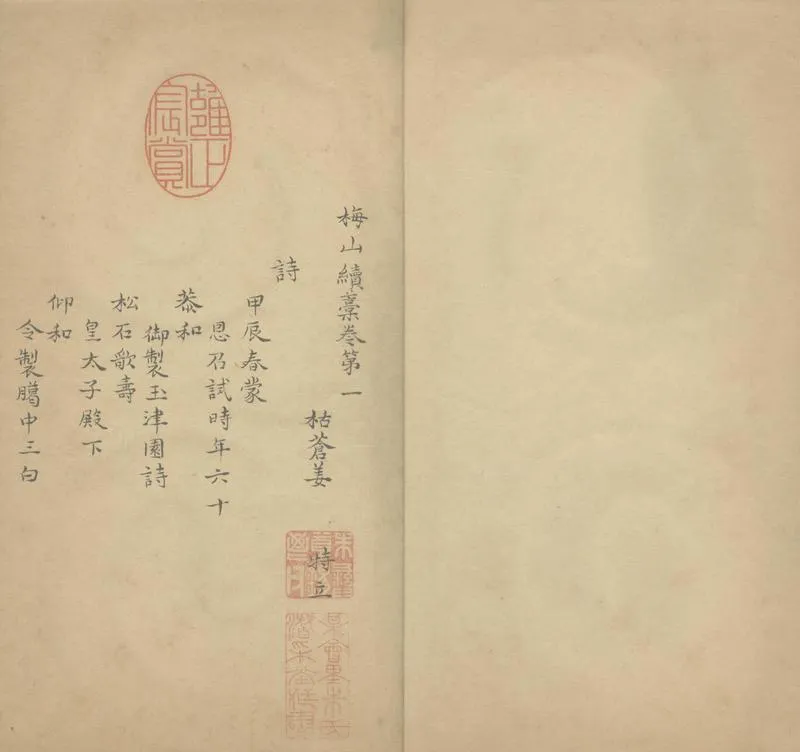 梅山續藁卷第一
枯蒼姜特立
詩
甲辰春蒙
恩召試時年六十
恭和
御製玉津園詩
松石歌壽
皇太子殿下
仰和
令製臈中三白
雍正宸賞